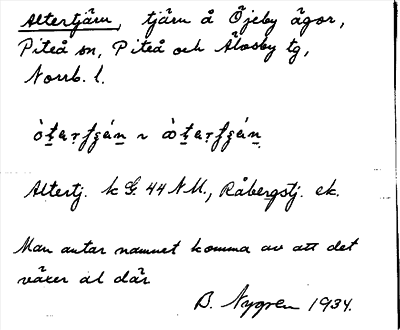 Altertjärn, tjärn å Öjeby ägor,
Piteå sn, Piteå och Älvsby tg,
Norrb. l.
Altertj. k G. 44 NU., Råbergstj. ek.
Man antar namnet komma av att det
växer al där
B. Nygren 1934.